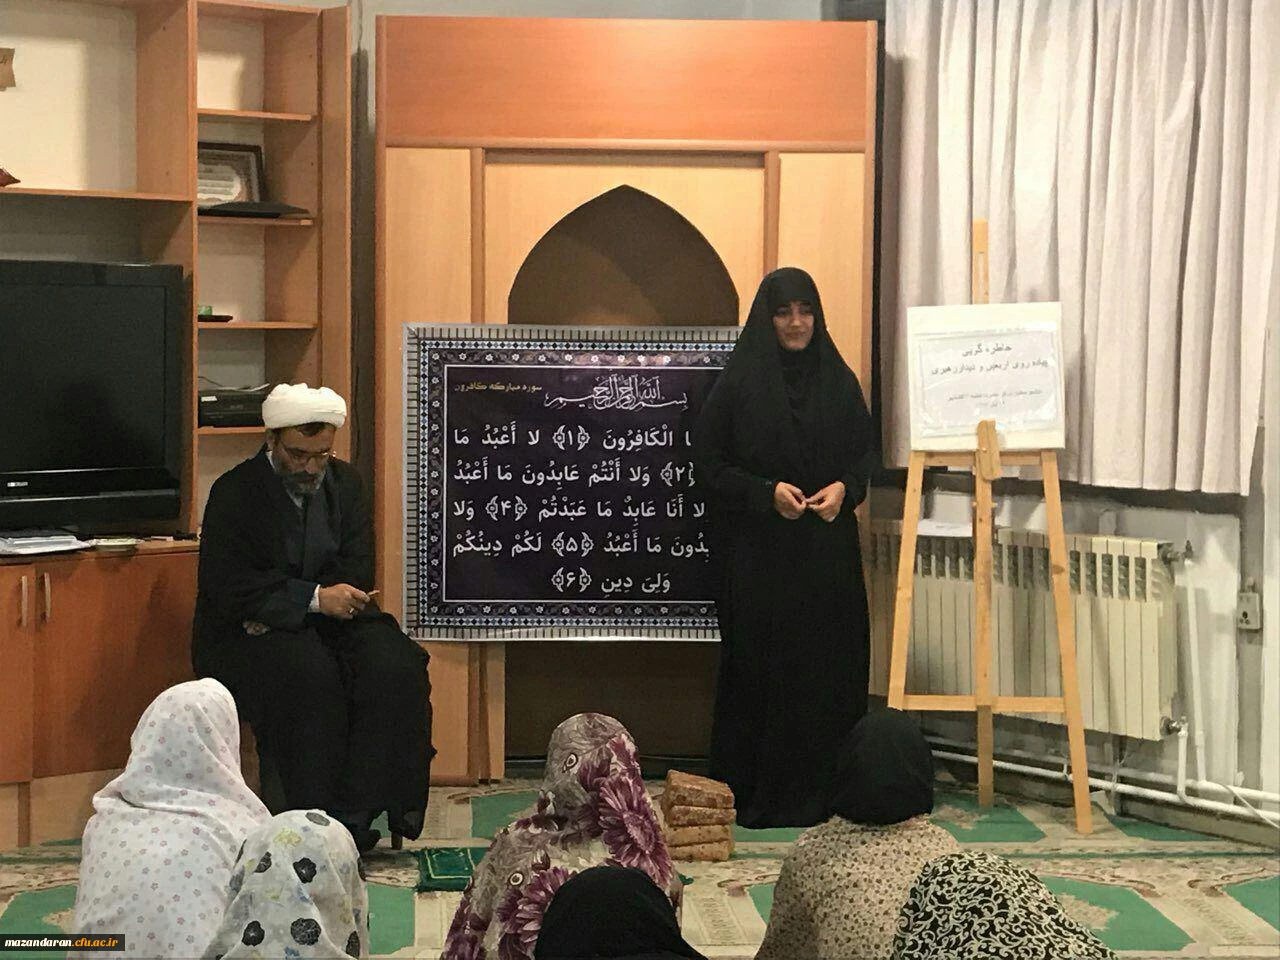 سوره مبارکه کافرون
بِسْمِ اللَّهِ الرَّحْمَنِ الرَّحِيمِ
الْكَافِرُونَ ﴿۱﴾ لا أَعْبُدُ مَا
﴿۲﴾ وَلا أَنْتُمْ عَابِدُونَ مَا أَعْبُدُ
لا أَنَا عَابِدٌ مَا عَبَدْتُمْ ﴿۴﴾ وَلا
بِدُونَ مَا أَعْبُدُ ﴿۵﴾ لَكُمْ دِينُكُمْ
وَلِيَ دِينِ ﴿۶﴾
خاطره گویی
پیاده روی اربعین و دیدار رهبری
mazandaran.cfu.ac.ir